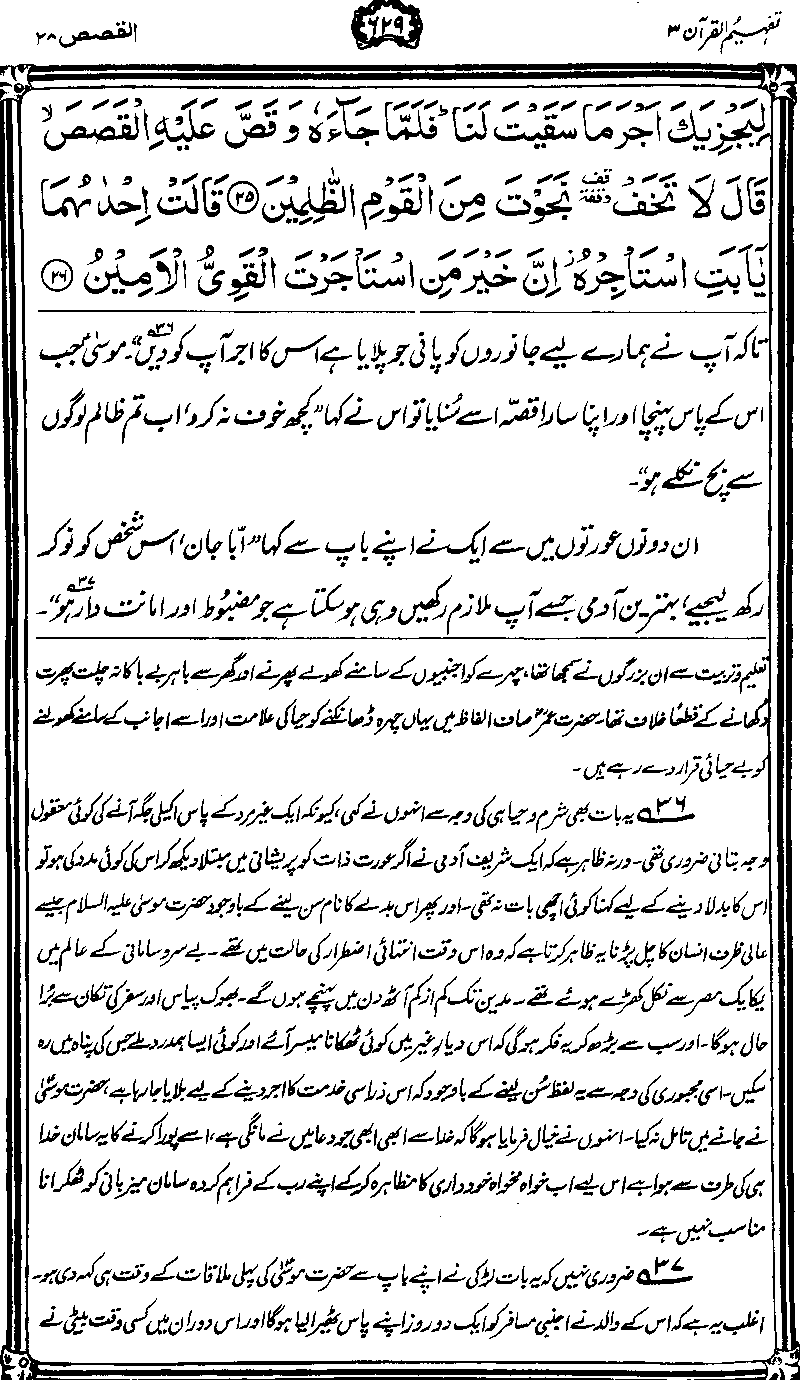 تفہیم القرآن ۳
۶۲۹
القصص ۲۸
لِيَجْزِيَكَ اَجْرَ مَا سَقَيْتَ لَنَا ؕ فَلَمَّا جَآءَهٗ وَ قَصَّ عَلَيْهِ الْقَصَصَ ۙ
قَالَ لَا تَخَفْ ٝ وقفة نَجَوْتَ مِنَ الْقَوْمِ الظّٰلِمِيْنَ ﴿۲۵﴾ قَالَتْ اِحْدٰىهُمَا
يٰۤاَبَتِ اسْتَاْجِرْهُ ؗ اِنَّ خَيْرَ مَنِ اسْتَاْجَرْتَ الْقَوِيُّ الْاَمِيْنُ ﴿۲۶﴾
تاکہ آپ نے ہمارے لیے جانوروں کو پانی جو پلایا ہے اس کا اجر آپ کو دیں"۳۶۔ موسیٰؑ جب
اس کے پاس پہنچا اور اپنا سارا قصّہ اسے سُنایا تو اس نے کہا "کچھ خوف نہ کرو، اب تم ظالم لوگوں
سے بچ نکلے ہو"۔
ان دونوں عورتوں میں سے ایک نے اپنے باپ سے کہا "ابّا جان، اس شخص کو نوکر
رکھ لیجیے، بہترین آدمی جسے آپ ملازم رکھیں وہی ہو سکتا ہے جو مضبُوط اور امانت دار ہو"۳۷۔
تعلیم و تربیت سے ان بزرگوں نے سمجھا تھا، چہرے کو اجنبیوں کے سامنے کھولے پھرنے اور گھر سے باہر بے باکانہ چلت پھرت
دکھانے کے قطعًا خلاف تھا۔ حضرت عمرؓ صاف الفاظ میں یہاں چہرہ ڈھانکنے کو حیا کی علامت اور اسے اجانب کے سامنے کھولنے
کو بے حیائی قرار دے رہے ہیں۔
۳۶ یہ بات بھی شرم و حیا ہی کی وجہ سے انہوں نے کہی، کیونکہ ایک غیر مرد کے پاس اکیلی جگہ آنے کی کوئی معقول
وجہ بتانی ضروری تھی۔ ورنہ ظاہر ہے کہ ایک شریف آدمی نے اگر عورت ذات کو پریشانی میں مبتلا دیکھ کر اس کی کوئی مدد کی ہو تو
اس کا بدلا دینے کے لیے کہنا کوئی اچھی بات نہ تھی۔ اور پھر اس بدلے کا نام سن لینے کے باوجود حضرت موسیٰ علیہ السلام جیسے
عالی ظرف انسان کا چل پڑنا یہ ظاہر کرتا ہے کہ وہ اس وقت انتہائی اضطرار کی حالت میں تھے۔ بے سروسامانی کے عالم میں
یکایک مصر سے نکل کھڑے ہوئے تھے۔ مدین تک کم از کم آٹھ دن میں پہنچے ہوں گے۔ بھوک پیاس اور سفر کی تکان سے بُرا
حال ہو گا۔ اور سب سے بڑھ کر یہ فکر ہو گی کہ اس دیارِ غیر میں کوئی ٹھکانا میسر آئے اور کوئی ایسا ہمدرد ملے جس کی پناہ میں رہ
سکیں۔ اسی مجبوری کی وجہ سے یہ لفظ سُن لینے کے باوجود کہ اس ذرا سی خدمت کا اجر دینے کے لیے بلایا جا رہا ہے، حضرت موسیٰؑ
نے جانے میں تامل نہ کیا۔ انہوں نے خیال فرمایا ہو گا کہ خدا سے ابھی ابھی جو دعا میں نے مانگی ہے، اسے پورا کرنے کا یہ سامان خدا
ہی کی طرف سے ہوا ہے اس لیے اب خواہ مخواہ خودداری کا مظاہرہ کر کے اپنے رب کے فراہم کردہ سامان میزبانی کو ٹھکرانا
مناسب نہیں ہے۔
۳۷ ضروری نہیں کہ یہ بات لڑکی نے اپنے باپ سے حضرت موسیٰؑ کی پہلی ملاقات کے وقت ہی کہہ دی ہو۔
اغلب یہ ہے کہ اس کے والد نے اجنبی مسافر کو ایک دو روز اپنے پاس ٹھیرا لیا ہو گا اور اس دوران میں کسی وقت بیٹی نے